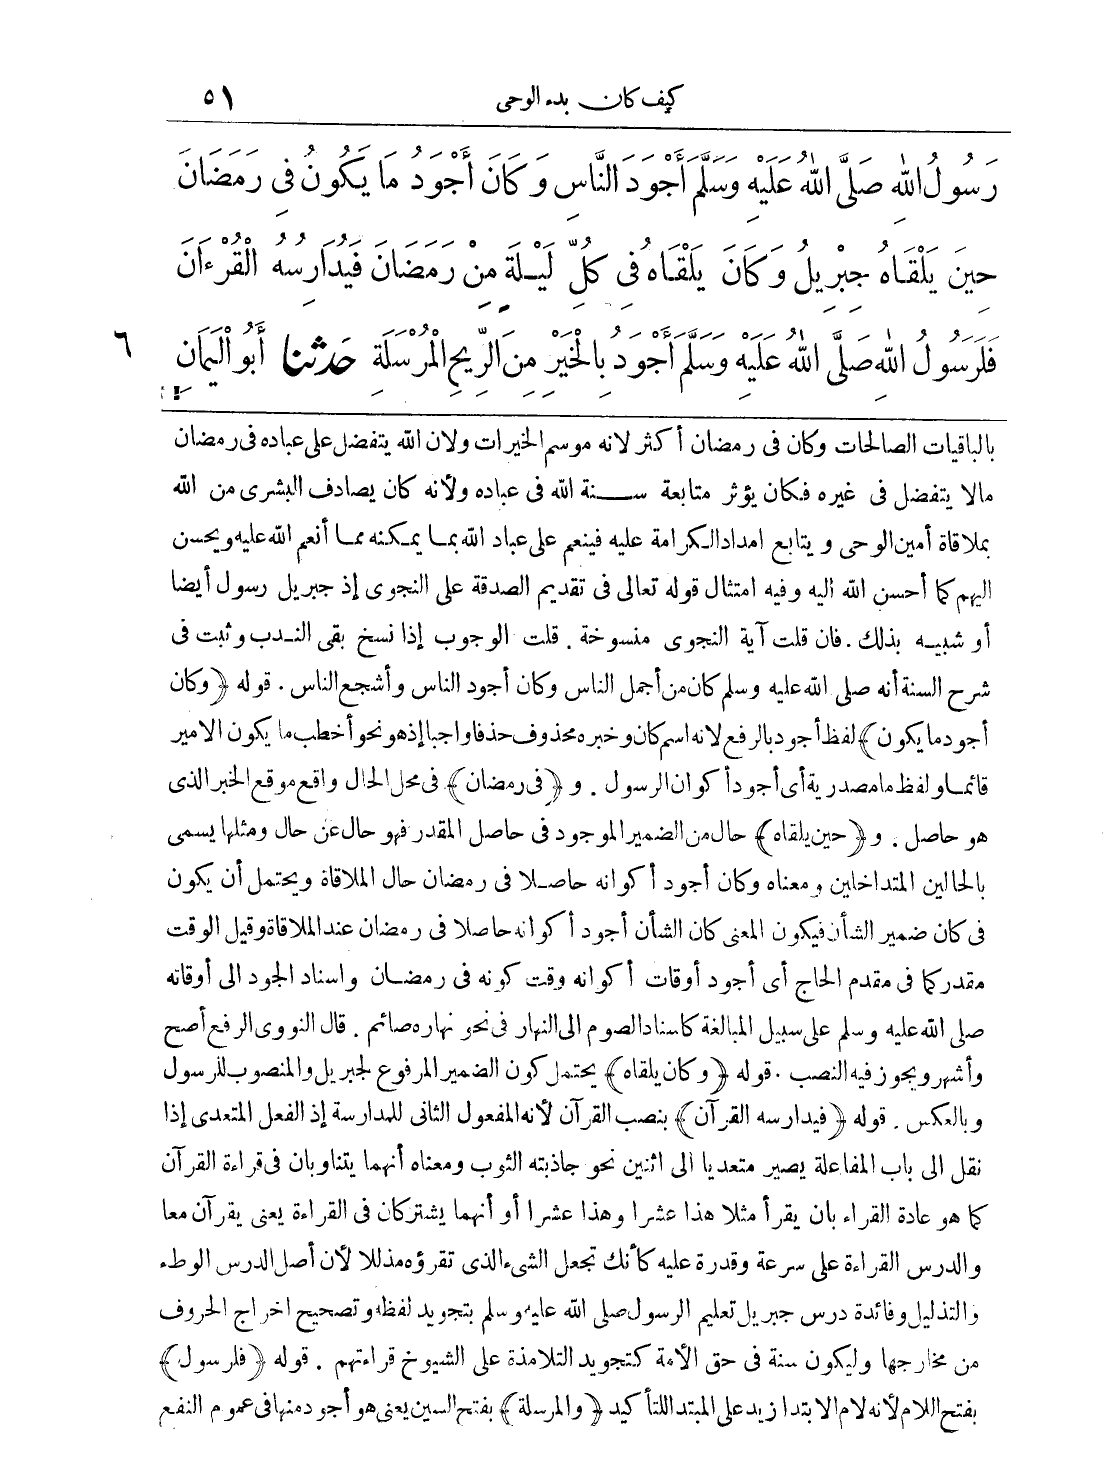 كيف كان بدء الوحى ٥١
رَسُولُ اللهِ صَلَّى اللهُ عَلَيْهِ وَسَلَّمَ أَجْوَدَ النَّاسِ وَكَانَ أَجْوَدُ مَا يَكُونُ فِى رَمَضَانَ
حِينَ يَلْقَاهُ جِبْرِيلُ وَكَانَ يَلْقَاهُ فِى كُلِّ لَيْلَةٍ مِنْ رَمَضَانَ فَيُدَارِسُهُ الْقُرْءَانَ
فَلَرَسُولُ اللهِ صَلَّى اللهُ عَلَيْهِ وَسَلَّمَ أَجْوَدُ بِالْخَيْرِ مِنَ الرِّيحِ الْمُرْسَلَةِ حَدثنا أَبُو الْيَمَانِ ٦
بالباقيات الصالحات وكان فى رمضان أكثر لانه موسم الخيرات ولان الله يتفضل على عباده فى رمضان
مالا يتفضل فى غيره فكان يؤثر متابعة سنة الله فى عباده ولأنه كان يصادف البشرى من الله
بملاقاة أمين الوحى ويتابع امداد الكرامة عليه فينعم على عباد الله بما يمكنه مما أنعم الله عليه ويحسن
اليهم كما أحسن الله اليه وفيه امتثال قوله تعالى فى تقديم الصدقة على النجوى إذ جبريل رسول أيضا
أو شبيه بذلك . فان قلت آية النجوى منسوخة . قلت الوجوب إذا نسخ بقى الندب وثبت فى
شرح السنة أنه صلى الله عليه وسلم كان من أجمل الناس وكان أجود الناس وأشجع الناس . قوله ﴿وكان
أجود ما يكون﴾ لفظ أجود بالرفع لانه اسم كان وخبره محذوف حذفا واجبا إذ هو نحو أخطب ما يكون الامير
قائما ولفظ ما مصدرية أى أجود أكوان الرسول . و ﴿فى رمضان﴾ فى محل الحال واقع موقع الخبر الذى
هو حاصل . و﴿حين يلقاه﴾ حال من الضمير الموجود فى حاصل المقدر فهو حال عن حال ومثلها يسمى
بالحالين المتداخلين ومعناه وكان أجود أكوانه حاصلا فى رمضان حال الملاقاة ويحتمل أن يكون
فى كان ضمير الشأن فيكون المعنى كان الشأن أجود أكوانه حاصلا فى رمضان عند الملاقاة وقيل الوقت
مقدر كما فى مقدم الحاج أى أجود أوقات أكوانه وقت كونه فى رمضان واسناد الجود الى أوقاته
صلى الله عليه وسلم على سبيل المبالغة كاسناد الصوم الى النهار فى نحو نهاره صائم . قال النووى الرفع أصح
وأشهر ويجوز فيه النصب . قوله ﴿وكان يلقاه﴾ يحتمل كون الضمير المرفوع لجبريل والمنصوب للرسول
وبالعكس . قوله ﴿فيدارسه القرآن﴾ بنصب القرآن لأنه المفعول الثانى للمدارسة إذ الفعل المتعدى إذا
نقل الى باب المفاعلة يصير متعديا الى اثنين نحو جاذبته الثوب ومعناه أنهما يتناوبان فى قراءة القرآن
كما هو عادة القراء بان يقرأ مثلا هذا عشرا وهذا عشرا أو أنهما يشتركان فى القراءة يعنى يقرآن معا
والدرس القراءة على سرعة وقدرة عليه كأنك تجعل الشىء الذى تقرؤه مذللا لأن أصل الدرس الوطء
والتذليل وفائدة درس جبريل تعليم الرسول صلى الله عليه وسلم بتجويد لفظه وتصحيح اخراج الحروف
من مخارجها وليكون سنة فى حق الأمة كتجويد التلامذة على الشيوخ قراءتهم . قوله ﴿فلرسول﴾
بفتح اللام لأنه لام الابتدا زيد على المبتدا للتأكيد ﴿والمرسلة﴾ بفتح السين يعنى هو أجود منها فى عموم النفع